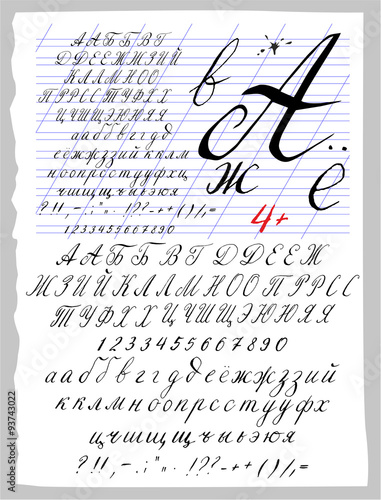 ААББВГ
ДДЕЕЖЗИЙ
КЛЛМНОО
ПРРССТУФХХ
ЦЧШЩЭЮЯЯ
аабббвггд
еёжжззиййкклм
ноопрсттууфхц
чшщцъыьэюя
?!!,-.;"..·!??-++(),=
12345567890
в А
ж ё
4+
ААББВГ ДДЕЕЖ
ЖЗИЙКЛЛМНОО ПРРСС
ТУФХХЦЧШЩЭЮЯЯ
123455567890
ааббвггдеёжжззий
ккклмноопрсстууфх
цчшщщъыьэюя
?!!,-.;"..·!??-++(),=
Adobe Stock | #93743022